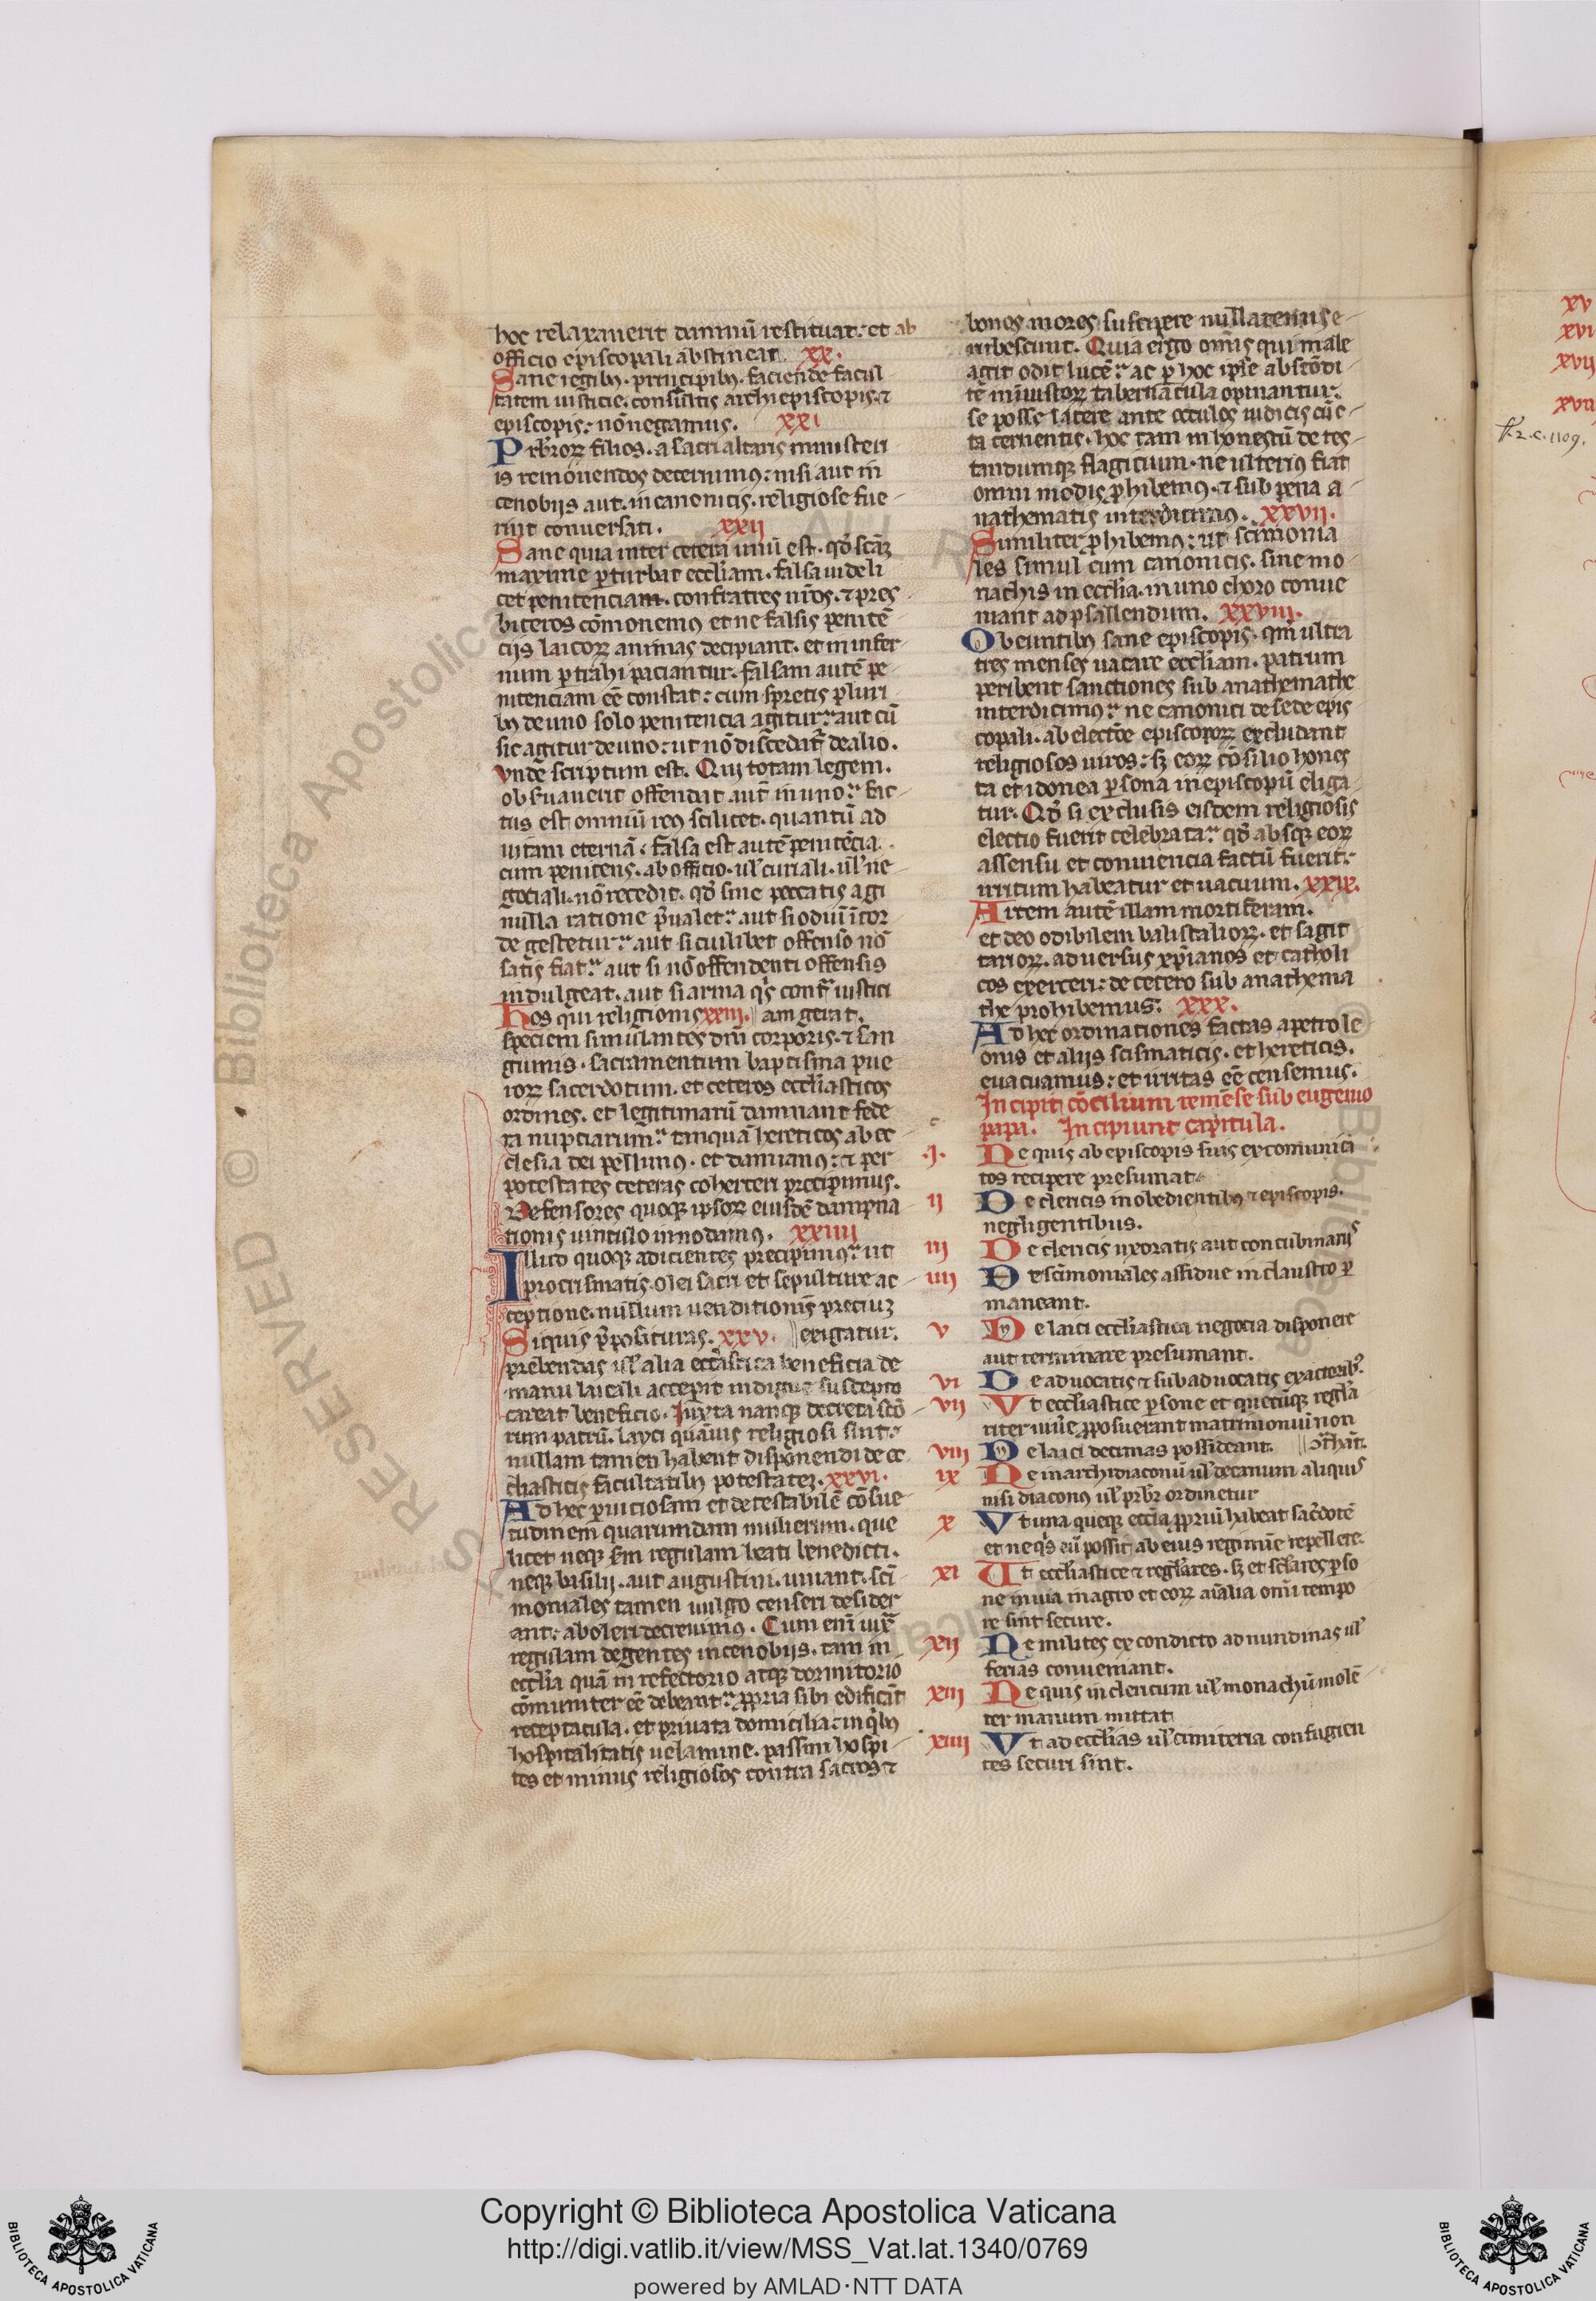 hoc relaxauerit damnū restituat. et ab
officio episcopali abstineat. xx.
Sane regibꝰ. principibꝰ. faciende facul
tatem iusticie. consultis archiepiscopis. ⁊
episcopis. nō negamus. xxi
Prbr̄oꝝ filios. a sacri altaris ministeri
is remouendos decernimꝰ. nisi aut in
cenobijs aut. in canonicis. religiose fue
rint conuersati. xxii
Sane quia inter cetera unū est. qd̄ scāꝫ
maxime ꝑturbat eccliam. falsa uideli
cet penitencia. confratres nr̄os. ⁊ pres
biteros cōmonemꝰ et ne falsis penitē
cijs laicoꝝ animas decipiant. et in infer
num ꝑtrahi paciantur. falsam autē pe
nitenciam eē constat. cum spretis pluri
bꝰ de uno solo penitencia agitur. aut cū
sic agitur de uno. ut nō discedat᷑ de alio.
vnde scriptum est. Qui totam legem.
obẜuauerit offendat aut̄ in uno. fac
tus est omniū reꝰ scilicet. quantū ad
uitam eternā. falsa est autē penitēcia.
cum penitens. ab officio. ul̓ curiali. ul̓ ne
gociali. nō recedit. qd̄ sine peccatis agi
nulla ratione p̄ualet. aut si odiū ī cor
de gestetur. aut si cuilibet offenso nō
satis fiat. aut si nō offendenti offensis
indulgeat. aut si arma qͥs cont̄ iustici
Hos qui religionis xxiii. am gerat.
speciem simulantes dn̄i corporis. ⁊ san
guinis. sacramentum baptisma pue
roꝝ sacerdotum. et ceteros eccl̄iasticos
ordines. et legitimarū damnant fede
ra nupciarum. tanquā hereticos ab ec
clesia dei pellimꝰ. et damnamꝰ. ⁊ per
potestates ceteras coherceri precipimus.
Defensores quoqꝫ ipsoꝝ eiusdē dampna
tionis uinculo innodamꝰ. xxiiii
Illud quoqꝫ adicientes precipimꝰ. ut
pro crismatis. olei sacri et sepulture ac
ceptione. nullum uenditionis preciuꝫ
Siquis p̄posituras. xxv. exigatur.
prebendas ul̓ alia eccl̄iastica beneficia de
manu laicali acceperit indigne suscepto
careat beneficio. Iuxta nanqꝫ decreta sc̄o
rum patrū. layci quāuis religiosi sint.
nullam tamen habent disponendi de ec
clasticis facultatibꝰ potestateꝫ. xxvi.
Ad hec ꝑniciosam et detestabilē cōsue
tudinem quarumdam mulierum. que
licet neqꝫ scd̄m regulam beati benedicti.
neqꝫ basilij. aut augustini. uiuant. sc̄i
moniales tamen uulgo censeri desider
ant. aboleri decreuimꝰ. Cum eni iux̄
regulam degentes in cenobijs. tam in
eccl̄ia quā in refectorio atqꝫ dormitorio
cōmuniter eē debeant. ꝓpria sibi edificāt
receptacula. et priuata domicilia. in qͥbꝰ
hospitalitatis uelamine. passim hospi
tes et minus religiosos contra sacros ⁊
bonos mores suscipere nullatenus e
rubescunt. Quia ergo omīs qui male
agit odit lucē. ac ꝑ hoc ipse abscōdi
tē in iustoꝝ tabernacula opinantur.
se posse latere ante occulos iudicis cūc
ta cernentis. hoc tam inhonestū detes
tandumqꝫ flagicium. ne ulteriꝰ fiat
omni modis ꝓhibemꝰ. ⁊ sub pena a
nathematis interdicimꝰ. xxvii.
Similiter ꝓhibemꝰ. ut sc̄imonia
les simul cum canonicis. siue mo
nachis in eccl̄ia. in uno choro conue
niant ad psallendum. xxviii.
Obeuntibꝰ sane episcopis. qm̄ ultra
tres menses uacare eccl̄iam. patrum
peribent sanctiones sub anathemathe
interdicimꝰ. ne canonici de sede epis
copali. ab electōe episcopoꝝ excludant
religiosos uiros. sꝫ eoꝝ cōsilio hones
ta et idonea ꝑsona in episcopū eliga
tur. Qd̄ si exclusis eisdem religiosis
electio fuerit celebrata. qd̄ absqꝫ eoꝝ
assensu et conniuencia factū fuerit.
irritum habeatur et uacuum. xxix.
Artem autē illam mortiferam.
et deo odibilem balistalioꝝ. et sagit
tarioꝝ. aduersus xp̄ianos et catholi
cos exerceri. de cetero sub anathema
the prohibemus. xxx.
Ad hec ordinationes factas a petro le
onis et alijs scismaticis. et hereticis.
euacuamus. et irritas eē censemus.
Incipit cōcilium remēse sub eugenio
papa. Incipiunt capitula.
.I. Ne quis ab episcopis suis excomunica
tos recipere presumat.
ii De clericis inobedientibꝰ ⁊ episcopis.
negligentibus.
iii De clericis uxoratis aut concubinariis
iiii De sc̄imoniales assidue in claustro ꝑ
maneant.
v Ne laici eccl̄iastica negocia disponere
aut terminare presumant.
vi De aduocatis ⁊ subaduocatis exactoribꝰ.
vii Vt eccl̄iastice ꝑsone et quecūqꝫ regl̄a
riter uiuē ꝓposuerant matrimoniū non
viii Ne laici decimas possideant. ꝯt̄hāt.
ix Ne in archidiaconū ul̓ decanum aliquis
nisi diaconꝰ ul̓ prbr̄ ordinetur
x Vt una queqꝫ eccl̄ia ꝓpriū habeat sac̄dotē
et ne qͥs eū possit ab eius regimīe repellere.
xi Vt eccl̄iastice ⁊ regl̄ares. sꝫ et scl̄ares ꝑso
ne in uia in agro et eoꝝ aīalia omī tempo
re sint secure.
xii Ne milites ex condicto ad nundinas ul̓
ferias conueniant.
xiii Ne quis in clericum ul̓ monachū uiolē
ter manum mittat
xiiii Vt ad eccl̄ias ul̓ cimiteria confugien
tes securi sint.
xv
xvi
xvii
Copyright © Biblioteca Apostolica Vaticana
http://digi.vatlib.it/view/MSS_Vat.lat.1340/0769
powered by AMLAD·NTT DATA
BIBLIOTECA APOSTOLICA VATICANA
BIBLIOTECA APOSTOLICA VATICANA